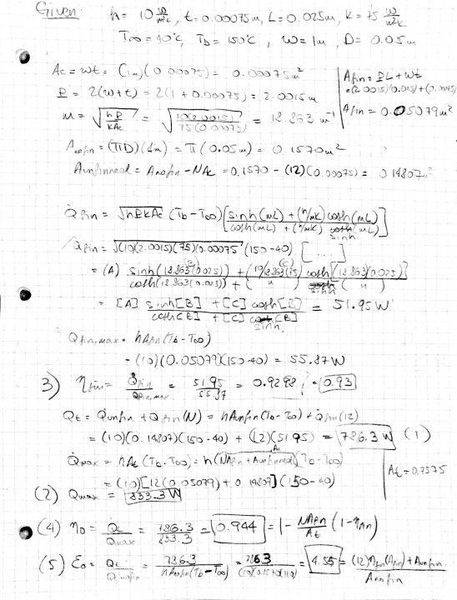 Given: h = 10 W/m²K, t = 0.00075m, L = 0.025m, K = 75 W/m²K
T∞ = 40°C, Tb = 150°C, w = 1m, D = 0.05m
Ac = wt = (1m)(0.00075) = 0.00075m²
P = 2(w+t) = 2(1+0.00075) = 2.0015m
m = √(hP/KAc) = √(10(2.0015)/75(0.00075)) = 18.863 m⁻¹
Afin = PL + wt
Afin = 0.05079m²
Anofin = (πD)(1m) = π(0.05m) = 0.1570m²
Aunfinned = Anofin - NAc = 0.1570 - (12)(0.00075) = 0.14807
Q̇fin = √hPKAc (Tb - T∞) [sinh(mL) + (h/mK) cosh(mL) / cosh(mL) + (h/mK) sinh(mL)]
Q̇fin = √(10)(2.0015)(75)(0.00075) (150-40) [...]
= [A] sinh[B] + [C] cosh[B] / cosh[B] + [C] sinh[B] = 51.95 W
Q̇fin,max = hAfin(Tb - T∞)
= (10)(0.05079)(150-40) = 55.87 W
3) ηfin = Q̇fin / Q̇fin,max = 51.95 / 55.87 = 0.9298 0.93
Qt = Qunfin + Qfin(N) = hAunfin(Tb - T∞) + Q̇fin(12)
= (10)(0.14807)(150-40) + (12)(51.95) = 786.3 W (1)
Q̇max = hAt(Tb - T∞) = h(NAfin + Aunfinned)(Tb - T∞)
At = 0.7575
= (10)[12(0.05079) + 0.14807](150-40)
(2) Qmax = 833.3 W
(4) ηo = Q̇t / Qmax = 786.3 / 833.3 = 0.944 = 1 - NAfin/At (1 - ηfin)
(5) Ɛo = Qt / Qnofin = 786.3 / hAnofin(Tb - T∞) = 786.3 / = 4.55 = (12)ηfin(Afin) + Aunfin / Anofin